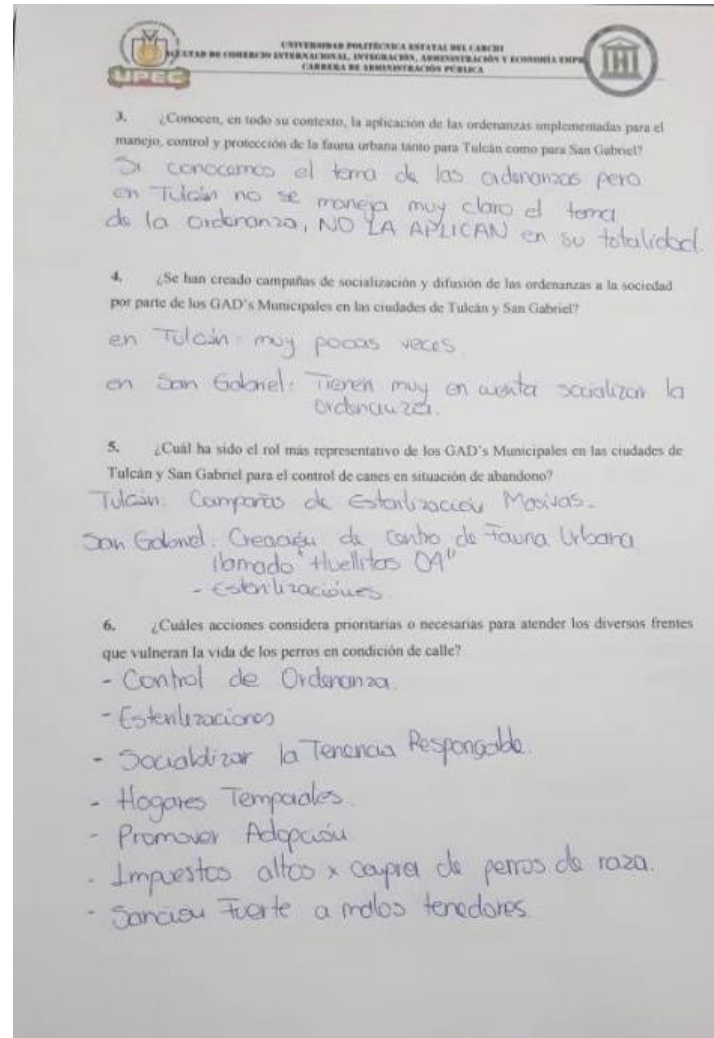 UNIVERSIDAD POLITÉCNICA ESTATAL DEL CARCHI
FACULTAD DE COMERCIO INTERNACIONAL, INTEGRACIÓN, ADMINISTRACIÓN Y ECONOMÍA EMPR
CARRERA DE ADMINISTRACIÓN PÚBLICA
UPEC
3. ¿Conocen, en todo su contexto, la aplicación de las ordenanzas implementadas para el
manejo, control y protección de la fauna urbana tanto para Tulcán como para San Gabriel?
Si conocemos el tema de las ordenanzas pero
en Tulcán no se maneja muy claro el tema
de la ordenanza, NO LA APLICAN en su totalidad.
4. ¿Se han creado campañas de socialización y difusión de las ordenanzas a la sociedad
por parte de los GAD's Municipales en las ciudades de Tulcán y San Gabriel?
en Tulcán: muy pocas veces.
en San Gabriel: Tienen muy en cuenta socializar la
ordenanza.
5. ¿Cuál ha sido el rol más representativo de los GAD's Municipales en las ciudades de
Tulcán y San Gabriel para el control de canes en situación de abandono?
Tulcán: Campañas de Esterilización Masivas.
San Gabriel: Creación de Centro de Fauna Urbana
llamado "Huellitas
- Esterilizaciones
6. ¿Cuáles acciones considera prioritarias o necesarias para atender los diversos frentes
que vulneran la vida de los perros en condición de calle?
- Control de Ordenanza.
- Esterilizaciones
- Socialdizar la Tenencia Responsable.
- Hogares Temporales.
- Promover Adopción
- Impuestos altos x compra de perros de raza.
- Sanción Fuerte a malos tenedores.